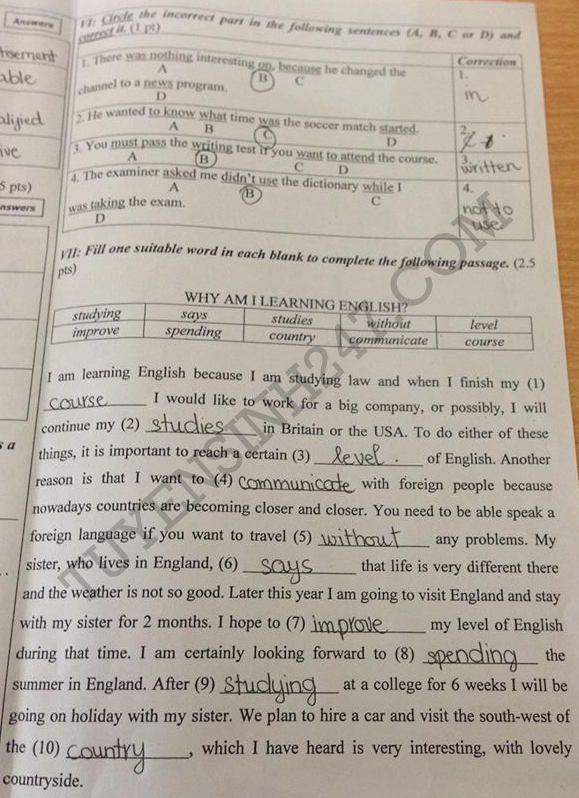 Answers
VI: Circle the incorrect part in the following sentences (A, B, C or D) and
correct it. (1 pt)
1. There was nothing interesting on, because he changed the
A B C
channel to a news program.
D
Correction
1.
in
2. He wanted to know what time was the soccer match started.
A B C D
2.
3. You must pass the writing test if you want to attend the course.
A B C D
3.
written
4. The examiner asked me didn't use the dictionary while I
A B C
was taking the exam.
D
4.
not to
use
able
ive
5 pts)
nswers
VII: Fill one suitable word in each blank to complete the following passage. (2.5
pts)
WHY AM I LEARNING ENGLISH?
studying says studies without level
improve spending country communicate course
I am learning English because I am studying law and when I finish my (1)
course I would like to work for a big company, or possibly, I will
continue my (2) studies in Britain or the USA. To do either of these
things, it is important to reach a certain (3) level. of English. Another
reason is that I want to (4) communicate with foreign people because
nowadays countries are becoming closer and closer. You need to be able speak a
foreign language if you want to travel (5) without any problems. My
sister, who lives in England, (6) says that life is very different there
and the weather is not so good. Later this year I am going to visit England and stay
with my sister for 2 months. I hope to (7) improve my level of English
during that time. I am certainly looking forward to (8) spending the
summer in England. After (9) studying at a college for 6 weeks I will be
going on holiday with my sister. We plan to hire a car and visit the south-west of
the (10) country, which I have heard is very interesting, with lovely
countryside.
s a
TUYENSINH247.COM